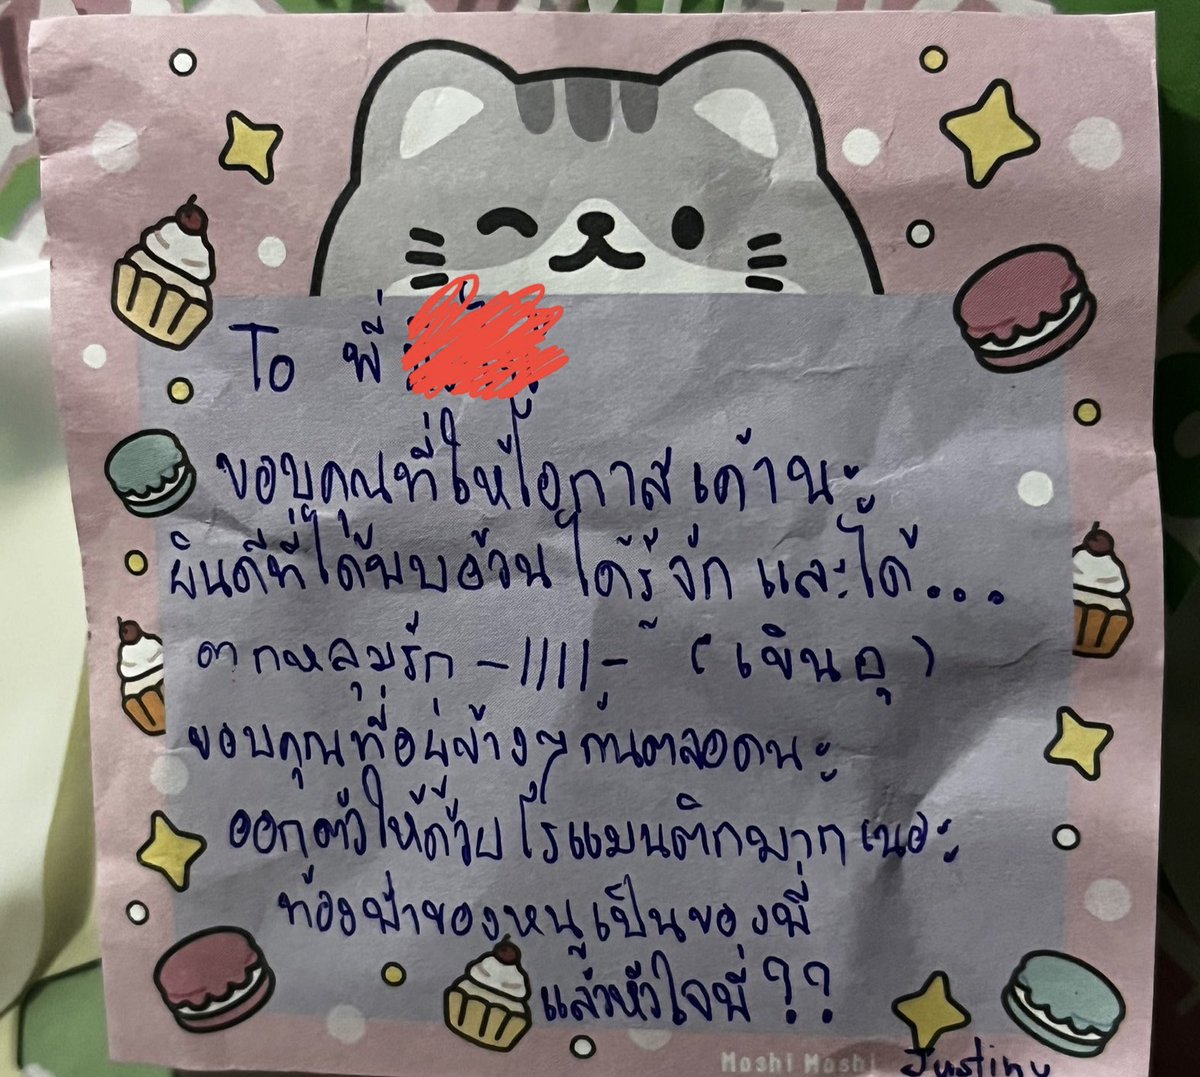 To พี่
ขอบคุณที่ให้โอกาสเค้านะ
ยินดีที่ได้พบอ้วน ได้รู้จัก และได้...
ตกหลุมรัก -////- (เขินอุ)
ขอบคุณที่อยู่ข้างๆกันตลอดนะ
ออกตัวให้ด้วย โรแมนติกมากเนอะ
ท้องฟ้าของหนูเป็นของพี่
แล้วหัวใจพี่??
Moshi Moshi Justiny